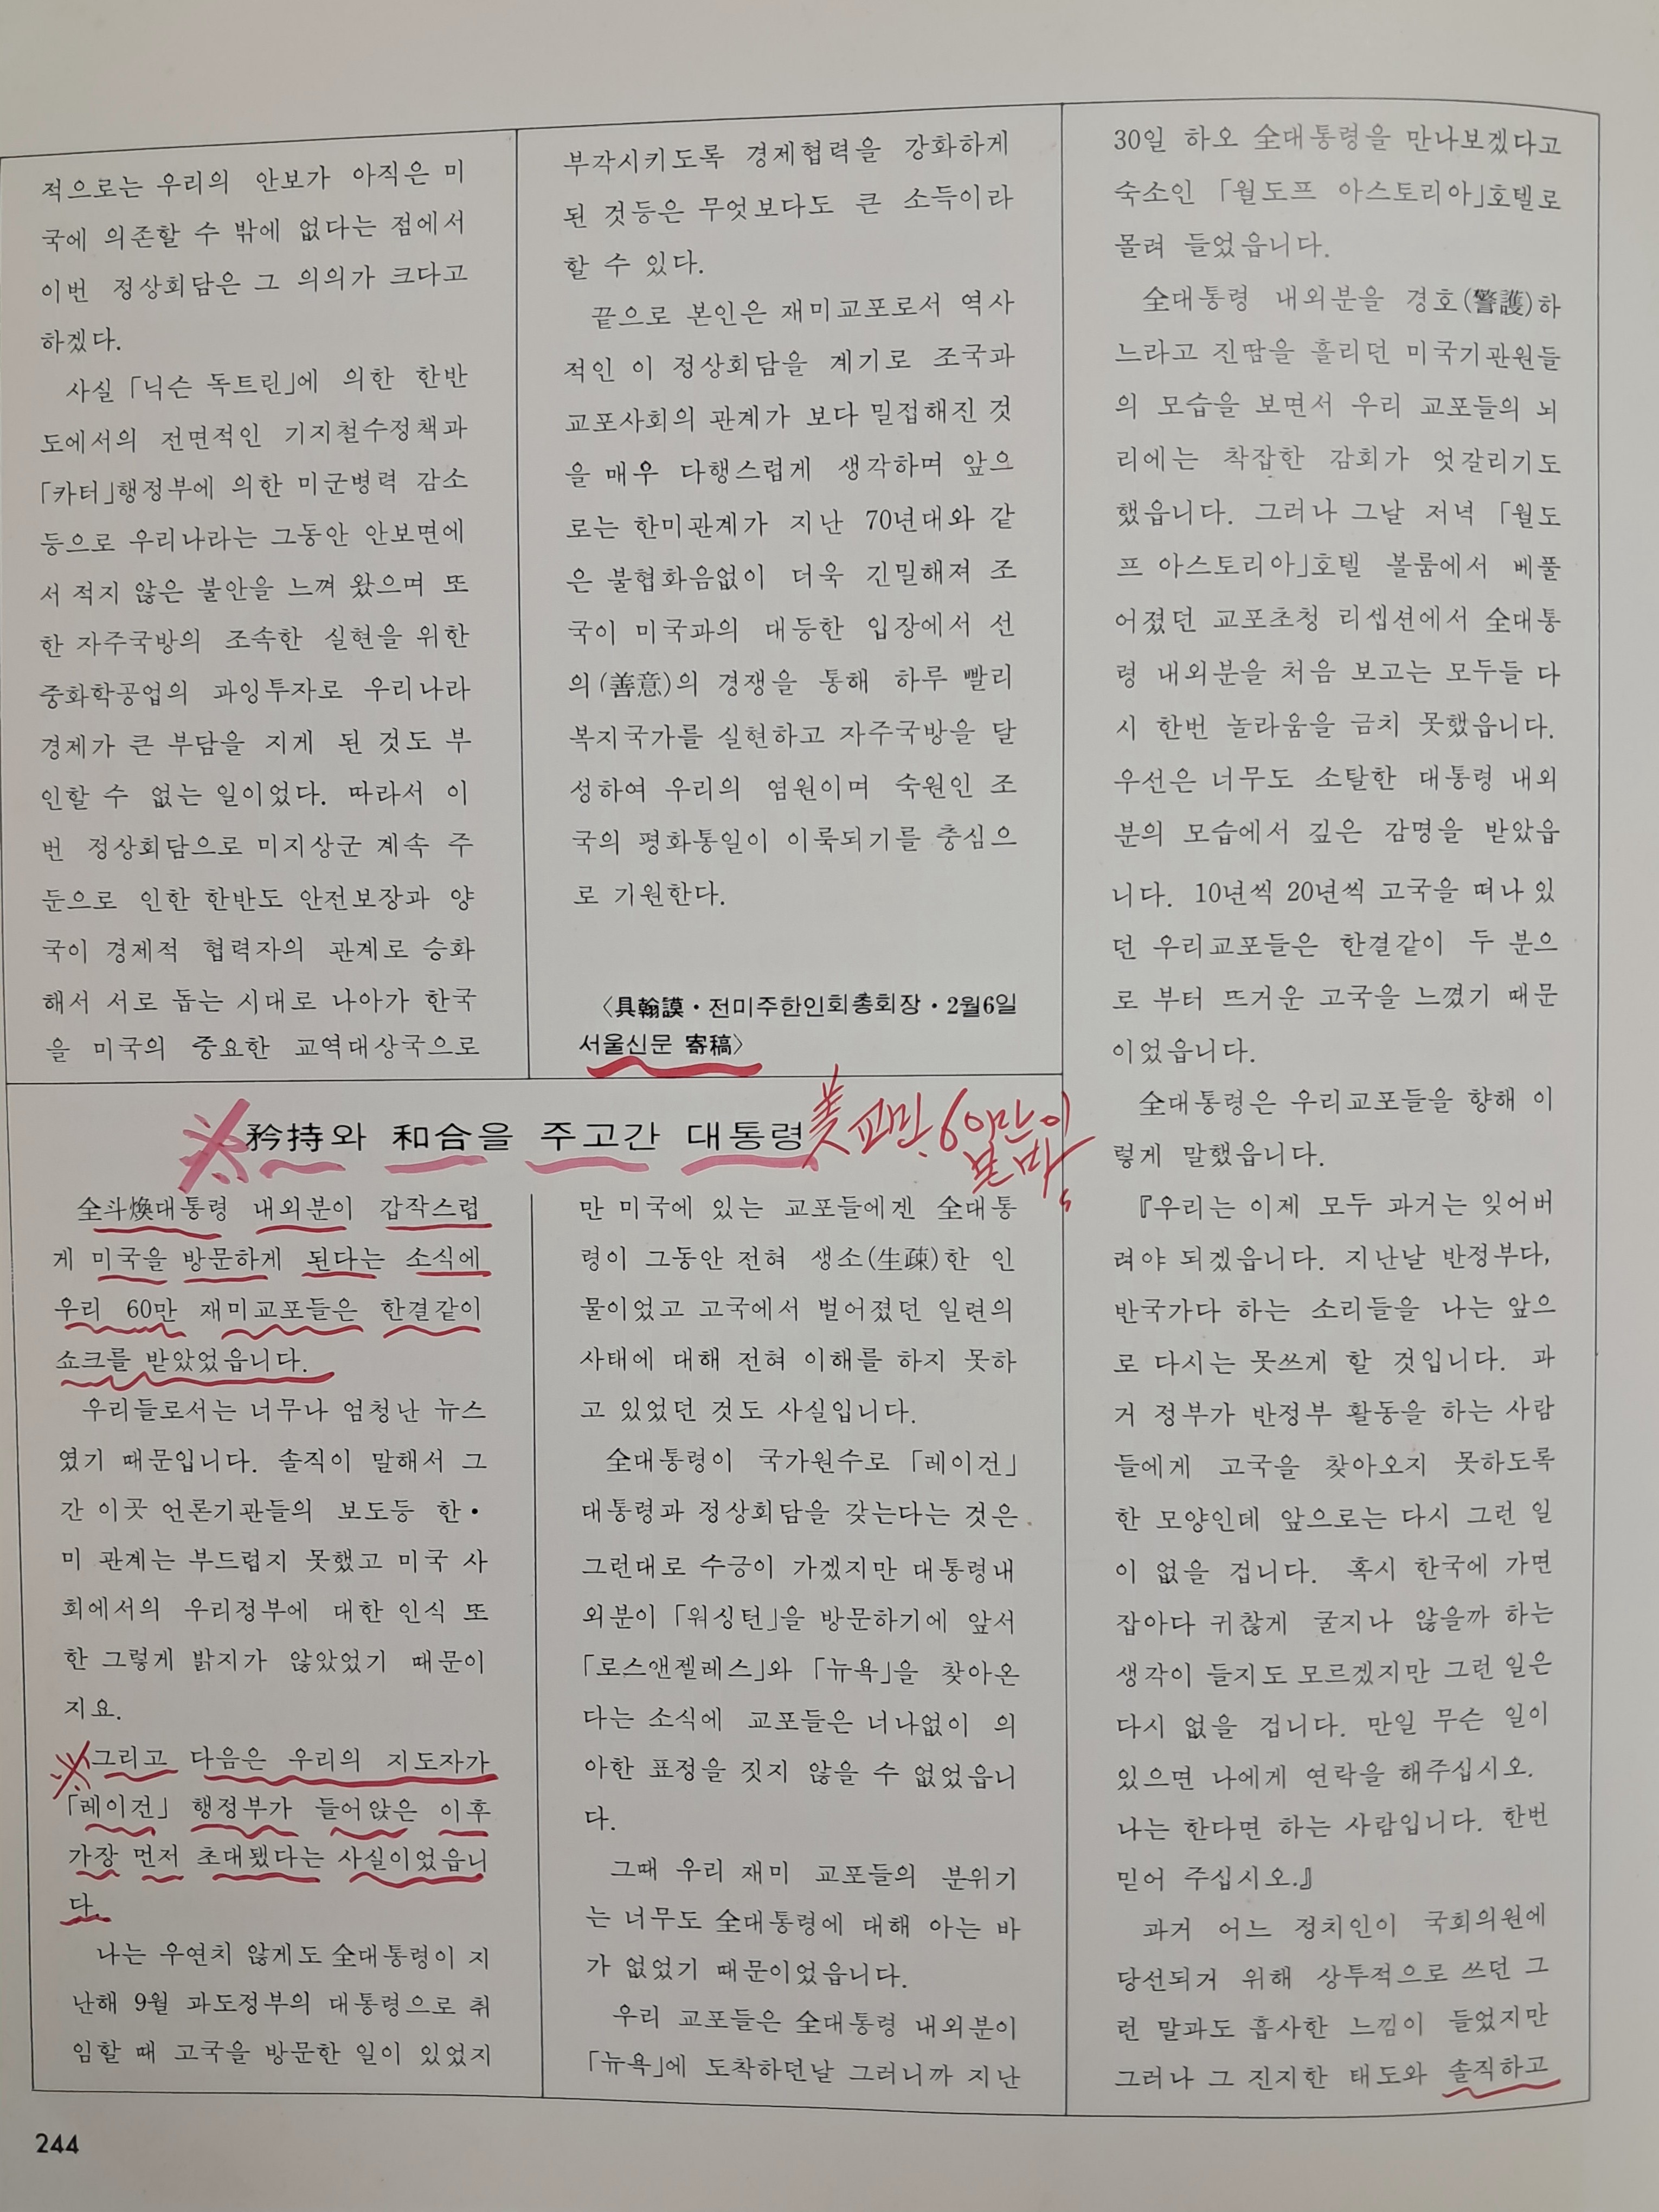 적으로는 우리의 안보가 아직은 미
국에 의존할 수 밖에 없다는 점에서
이번 정상회담은 그 의의가 크다고
하겠다.
사실 「닉슨 독트린」에 의한 한반
도에서의 전면적인 기지철수정책과
「카터」행정부에 의한 미군병력 감소
등으로 우리나라는 그동안 안보면에
서 적지 않은 불안을 느껴 왔으며 또
한 자주국방의 조속한 실현을 위한
중화학공업의 과잉투자로 우리나라
경제가 큰 부담을 지게 된 것도 부
인할 수 없는 일이었다. 따라서 이
번 정상회담으로 미지상군 계속 주
둔으로 인한 한반도 안전보장과 양
국이 경제적 협력자의 관계로 승화
해서 서로 돕는 시대로 나아가 한국
을 미국의 중요한 교역대상국으로
부각시키도록 경제협력을 강화하게
된 것등은 무엇보다도 큰 소득이라
할 수 있다.
끝으로 본인은 재미교포로서 역사
적인 이 정상회담을 계기로 조국과
교포사회의 관계가 보다 밀접해진 것
을 매우 다행스럽게 생각하며 앞으
로는 한미관계가 지난 70년대와 같
은 불협화음없이 더욱 긴밀해져 조
국이 미국과의 대등한 입장에서 선
의(善意)의 경쟁을 통해 하루 빨리
복지국가를 실현하고 자주국방을 달
성하여 우리의 염원이며 숙원인 조
국의 평화통일이 이룩되기를 충심으
로 기원한다.
〈具翰謨·전미주한인회총회장·2월6일
서울신문 寄稿〉
※矜持와 和合을 주고간 대통령
美 교민, 60만이
본 바
全斗煥대통령 내외분이 갑작스럽
게 미국을 방문하게 된다는 소식에
우리 60만 재미교포들은 한결같이
쇼크를 받았었읍니다.
우리들로서는 너무나 엄청난 뉴스
였기 때문입니다. 솔직이 말해서 그
간 이곳 언론기관들의 보도등 한·
미 관계는 부드럽지 못했고 미국 사
회에서의 우리정부에 대한 인식 또
한 그렇게 밝지가 않았었기 때문이
지요.
※그리고 다음은 우리의 지도자가
「레이건」 행정부가 들어앉은 이후
가장 먼저 초대됐다는 사실이었읍니
다.
나는 우연치 않게도 全대통령이 지
난해 9월 과도정부의 대통령으로 취
임할 때 고국을 방문한 일이 있었지
만 미국에 있는 교포들에겐 全대통
령이 그동안 전혀 생소(生疎)한 인
물이었고 고국에서 벌어졌던 일련의
사태에 대해 전혀 이해를 하지 못하
고 있었던 것도 사실입니다.
全대통령이 국가원수로 「레이건」
대통령과 정상회담을 갖는다는 것은
그런대로 수긍이 가겠지만 대통령내
외분이 「워싱턴」을 방문하기에 앞서
「로스앤젤레스」와 「뉴욕」을 찾아온
다는 소식에 교포들은 너나없이 의
아한 표정을 짓지 않을 수 없었읍니
다.
그때 우리 재미 교포들의 분위기
는 너무도 全대통령에 대해 아는 바
가 없었기 때문이었읍니다.
우리 교포들은 全대통령 내외분이
「뉴욕」에 도착하던날 그러니까 지난
30일 하오 全대통령을 만나보겠다고
숙소인 「월도프 아스토리아」호텔로
몰려 들었읍니다.
全대통령 내외분을 경호(警護)하
느라고 진땀을 흘리던 미국기관원들
의 모습을 보면서 우리 교포들의 뇌
리에는 착잡한 감회가 엇갈리기도
했읍니다. 그러나 그날 저녁 「월도
프 아스토리아」호텔 볼룸에서 베풀
어졌던 교포초청 리셉션에서 全대통
령 내외분을 처음 보고는 모두들 다
시 한번 놀라움을 금치 못했읍니다.
우선은 너무도 소탈한 대통령 내외
분의 모습에서 깊은 감명을 받았읍
니다. 10년씩 20년씩 고국을 떠나 있
던 우리교포들은 한결같이 두 분으
로 부터 뜨거운 고국을 느꼈기 때문
이었읍니다.
全대통령은 우리교포들을 향해 이
렇게 말했읍니다.
『우리는 이제 모두 과거는 잊어버
려야 되겠읍니다. 지난날 반정부다,
반국가다 하는 소리들을 나는 앞으
로 다시는 못쓰게 할 것입니다. 과
거 정부가 반정부 활동을 하는 사람
들에게 고국을 찾아오지 못하도록
한 모양인데 앞으로는 다시 그런 일
이 없을 겁니다. 혹시 한국에 가면
잡아다 귀찮게 굴지나 않을까 하는
생각이 들지도 모르겠지만 그런 일은
다시 없을 겁니다. 만일 무슨 일이
있으면 나에게 연락을 해주십시오.
나는 한다면 하는 사람입니다. 한번
믿어 주십시오.』
과거 어느 정치인이 국회의원에
당선되거 위해 상투적으로 쓰던 그
런 말과도 흡사한 느낌이 들었지만
그러나 그 진지한 태도와 솔직하고
244